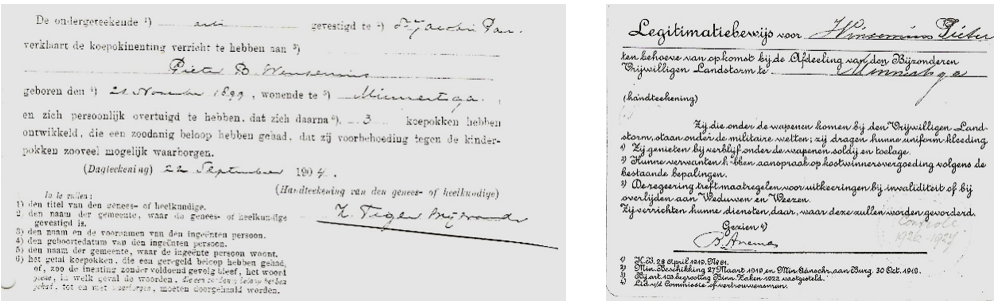 De ondergeteekende ¹) arts gevestigd te ²) St Jacobi Par.
verklaart de koepokinenting verricht te hebben aan ³)
Pieter B. Wensemius
geboren den ⁴) 21 November 1899, wonende te ⁵) Minnertsga.
en zich persoonlijk overtuigd te hebben, dat zich daarna ⁶) 3 koepokken hebben
ontwikkeld, die een zoodanig beloop hebben gehad, dat zij voorbehoeding tegen de kinder-
pokken zooveel mogelijk waarborgen.
(Dagteekening) 22 September 1904.
(Handteekening van den genees- of heelkundige)
In te vullen:
1) den titel van den genees- of heelkundige.
2) den naam der gemeente, waar de genees- of heelkundige
gevestigd is.
3) den naam en de voornamen van den ingeënten persoon.
4) den geboortedatum van den ingeënten persoon.
5) den naam der gemeente, waar de ingeënte persoon woont.
6) het getal koepokken, die een geregeld beloop hebben gehad,
of, zoo de inenting zonder voldoend gevolg bleef, het woord
geene, in welk geval de woorden, die een zoodanig beloop hebben
gehad, tot en met waarborgen, moeten doorgehaald worden.
Legitimatiebewijs voor Winsemius Pieter
ten behoeve van opkomst bij de Afdeeling van den Bijzonderen
Vrijwilligen Landstorm te Minnertsga
(handteekening)
Zij die onder de wapenen komen bij den Vrijwilligen Land-
storm, staan onder de militaire wetten; zij dragen hunne uniform kleeding.
¹) Zij genieten bij verblijf onder de wapenen soldij en toelage.
²) Hunne verwanten hebben aanspraak op kostwinnersvergoeding volgens de
bestaande bepalingen.
³) De regeering heft maatregelen voor uitkeeringen bij invaliditeit of bij
overlijden aan Weduwen en Weezen.
Zij verrichten hunne diensten daar, waar deze zullen worden gevorderd.
Gezien ⁴)
Controle
1926-1927
B. Anema
¹) K.B. 28 April 1919, No 61.
²) Min. Beschikking 27 Maart 1919 en Min. Aanschr. aan Burg. 30 Oct. 1919.
³) Bij art. 103 begrooting Binn. Zaken 1922 vastgesteld.
⁴) Lid v/d Commissie of vertrouwensman.